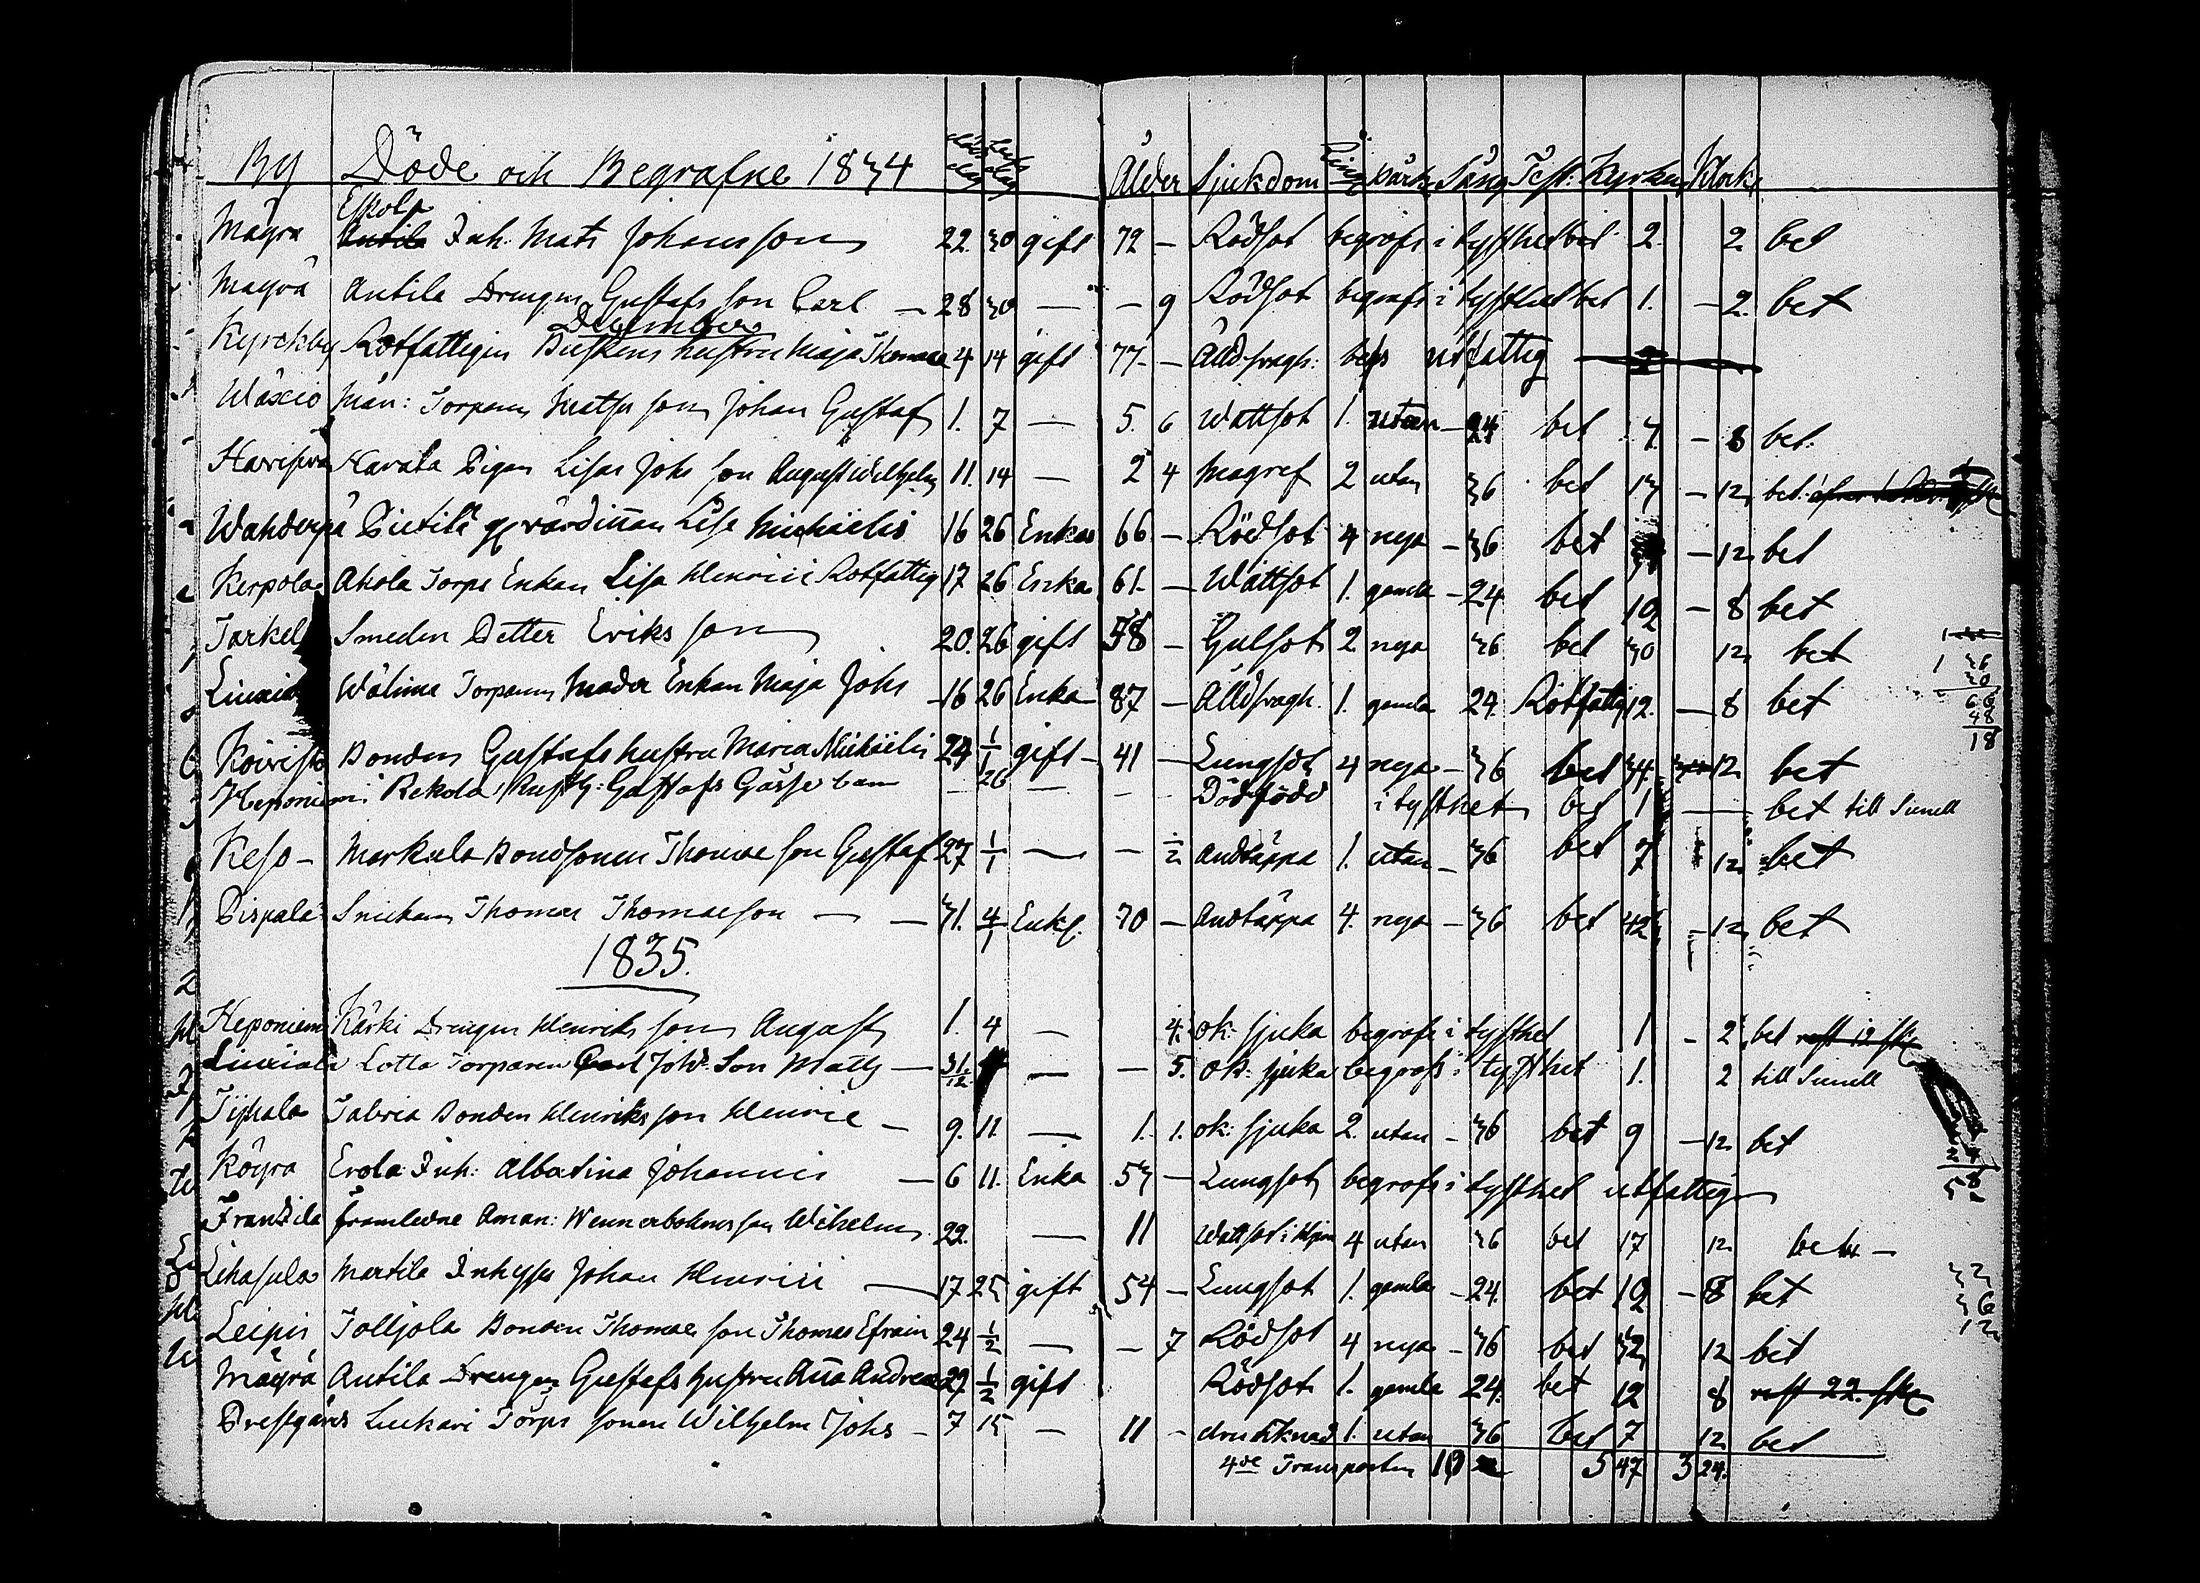 By Döde och Begrafne 1834 död dag Ålder Sjukdom Ring Bårk Sång Test: Kyrkan Klock
Eskola
Mäyrä Antila Inh. Mats Johansson 22. 30 gift 72 — Rödsot begrofs i tysthet bet 2. 2 bet
Mäyrä Antila Drengen Gustafs son Carl — 28 30 — — 9 Rödsot begrofs i tysthet bet 1. — 2 bet
December
Kyrckby Rotfattigen hustru Maja Thomae 4 14 gift 77 — Ålld.svagh: utfattig
Wäxiö Män: Torparen Matts son Johan Gustaf 1. 7 — 5. 6 Wattsot 1. utan — 24 bet 7. — 8 bet.
Havala Pigan Lisas Johs son August Wilhelm 11. 14 — 2 4 Magref 2 utan 36 bet 13 — 12 bet.
Pietilä värdinnan Lisa Michaelis 16 26 Enka 66 — Rödsot 4 nya — 36 bet — 12 bet
Kerpola Ahola Torps Enkan Lisa Henrici Rotfattig 17 26 Enka 61. — Wattsot 1. gamla — 24 bet 12 — 8 bet
Smeden Petter Eriks son 20. 26 gift 58 — Gulsot 2 nya 36 bet 30 12 bet
Liuxiala Torparens Moder Enkan Maja Johs — 16 26 Enka 87 — Ålldsvagh. 1. gamla 24. Rotfattig 12. — 8 bet
1 36
30
66
48
18
Koivisto Bonden Gustafs hustru Maria Michaelis 24 1/1 gift — 41 — Lungsot 4 nya — 36 bet 34. 12 bet
Heponiemi Rekola Gustafs Gosse barn — 26 — — Dödfödd i tysthet bet 1 — bet till Sunell
Keso — Markula Bondsonen Thomae son Gustaf 27 1/1 — — 1/2 Andtäppa 1. utan — 36 bet 7 12 bet
Pispala Snickaren Thomas Thomaeson — — 31. 4/1 Enkl. 70 — Andtäppa 4. nya — 36 bet 42 — 12 bet
1835.
Heponiemi Kärki Drengen Henriks son August 1. 4 — 4. ok: sjuka begrofs i tysthet 1 — 2 bet rest 12 sk
Liuxiala Lotta Torparen Carl Joh: Son Matts — 31/12 — — 5. ok: sjuka begrofs i tysthet 1. 2 till Sunell
Tyhala Jabria Bonden Henriks son Henric — 9. 11 — 1. 1. ok: sjuka 2. utan — 36 bet 9 — 12 bet
Köyrä Erola Inh: Albertina Johannis — 6 11. Enka 53 — Lungsot begrofs i tysthet utfattig
Frantsila framledne Aman: son Wilhelm 22. — 11 Wattsot i 4 utan 36 bet 17 12 bet —
Lihasula Martila Inhyses Johan Henrici — 17 25 gift 54 — Lungsot 1. gamla — 24. bet 12 — 8 bet
Leipis Tolljola Bonden Thomae son Thomas Efraim 24 1/2 — — 7 Rödsot 4 nya — 36 bet 32 12 bet
Mäyrä Antila Drengen Gustafs hustru Anna Andreae 27 1/2 gift Rödsot 1. gamla 24. bet 12 8 rest 22. sk
Prestgårds Luukari Torps sonen Wilhelm Johs — 7 15 — 11 — drunknad 1. utan 36 bet 7 12 bet
4de Transporten 10 5 47 3 24.